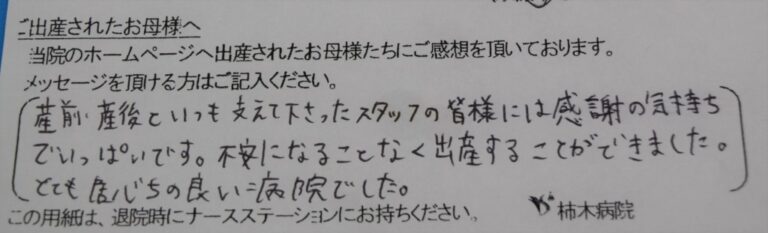 ご出産されたお母様へ
当院のホームページへ出産されたお母様たちにご感想を頂いております。
メッセージを頂ける方はご記入ください。
産前・産後といつも支えて下さったスタッフの皆様には感謝の気持ち
でいっぱいです。不安になることなく出産することができました。
とても居心ちの良い病院でした。
この用紙は、退院時にナースステーションにお持ちください。 柿木病院